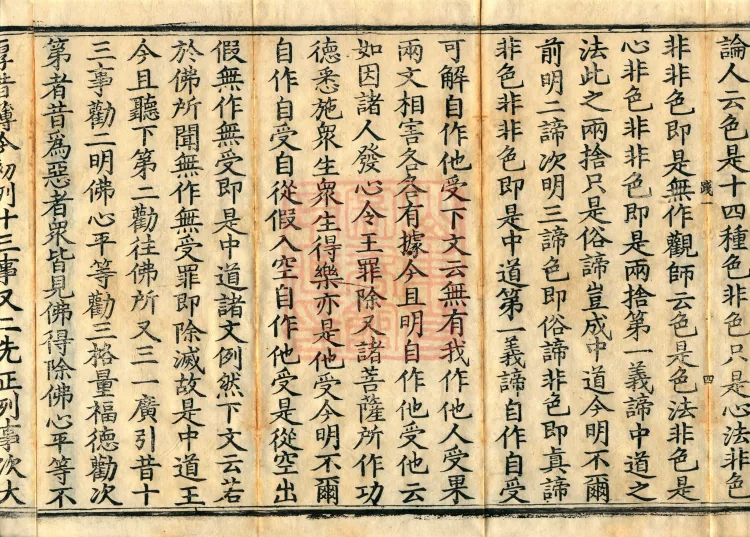 論人云色是十四種色非色只是心法非色
非非色即是無作觀師云色是色法非色是
心非色非非色即是兩捨第一義諦中道之
法此之兩捨只是俗諦豈成中道今明不爾
前明二諦次明三諦色即俗諦非色即真諦
非色非非色即是中道第一義諦自作自受
可解自作他受下文云無有我作他人受果
兩文相害各各有據今且明自作他受他云
如因諸人發心令王罪除又諸菩薩所作功
德悉施衆生衆生得樂亦是他受今明不爾
自作自受自從假入空自作他受是從空出
假無作無受即是中道諸文例然下文云若
於佛所聞無作無受罪即除滅故是中道王
今且聽下第二勸往佛所又三一廣引昔十
三事勸二明佛心平等勸三格量福德勸次
第者昔爲惡者衆皆見佛得除佛心平等不
厚昔薄今初列十三事又二先正列事次大
踐一
四